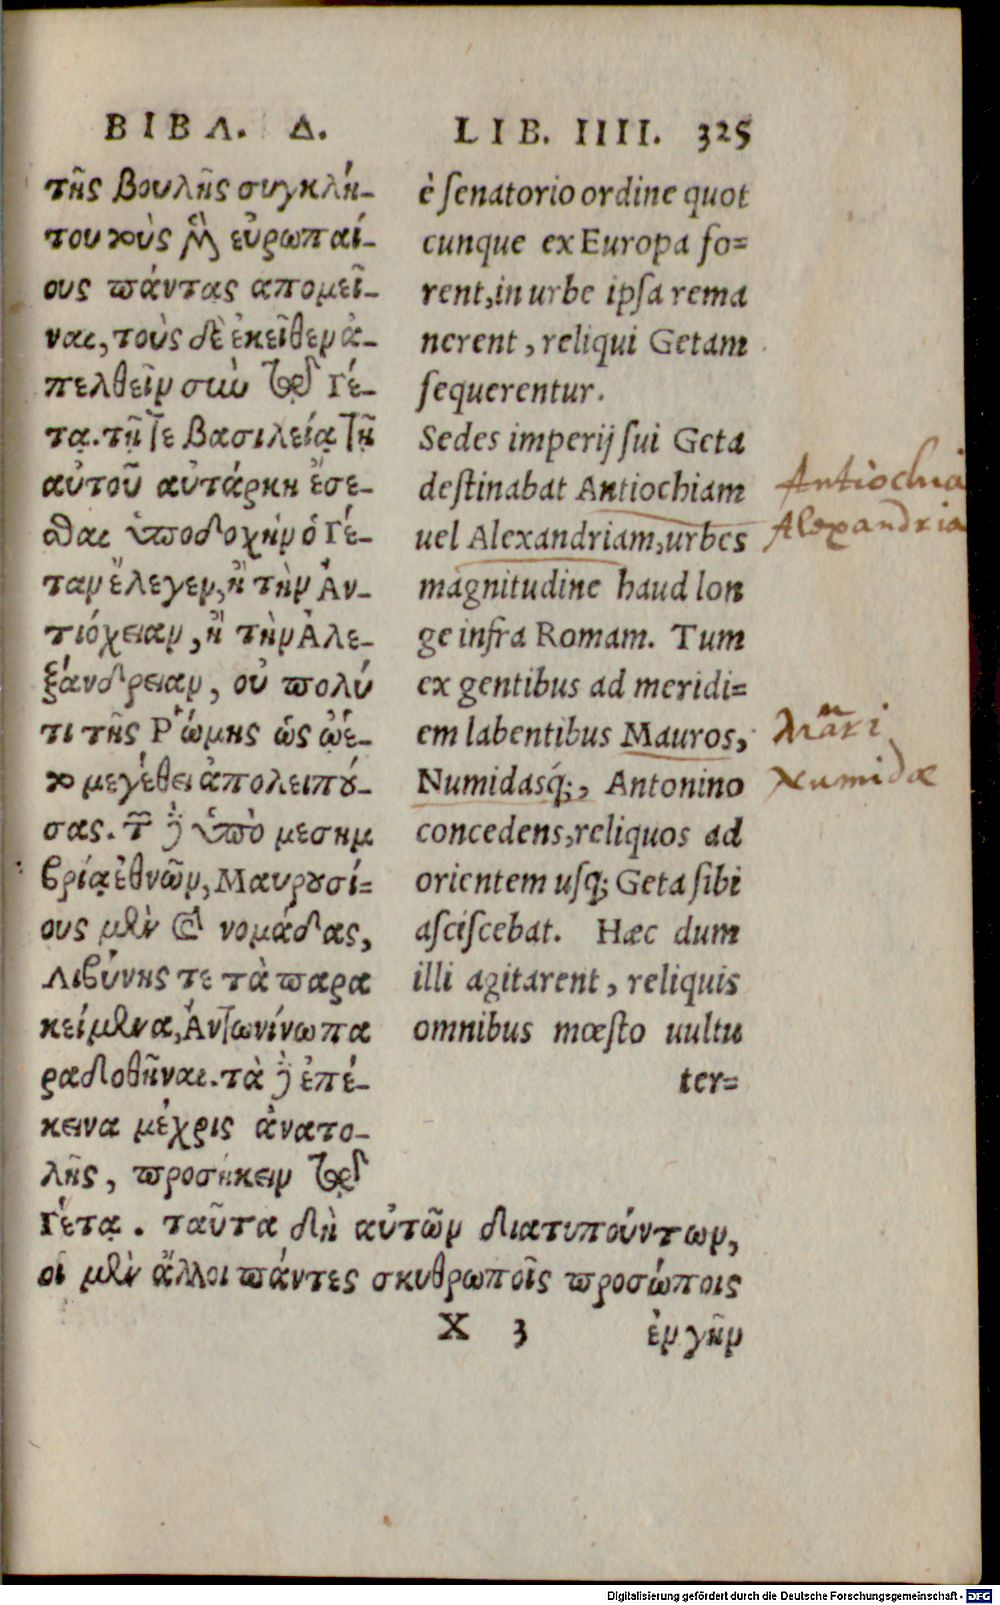 ΒΙΒΛ. Δ.
τῆς βουλῆς συγκλή-
του τοὺς μὲν εὐρωπαί-
ους πάντας απομεῖ-
ναι, τοὺς δὲ ἐκεῖθεν ἀ-
πελθεῖν σὺν τῷ Γέ-
τᾳ. τῇ τε βασιλείᾳ τῇ
αὐτοῦ αὐτάρκη ἔσε-
σθαι ὑποδοχὴν ὁ Γέ-
ταν ἔλεγεν, ἢ τὴν Ἀν-
τιόχειαν, ἢ τὴν Ἀλε-
ξάνδρειαν, οὐ πολύ
τι τῆς Ῥώμης ὡς ᾤε-
το μεγέθει ἀπολειπού-
σας. τῶν δὲ ὑπὸ μεσημ
βρίᾳ ἐθνῶν, Μαυρουσί=
ους μὲν καὶ νομάδας,
Λιβύης τε τὰ παρα
κείμενα, Ἀντωνίνω πα
ραδοθῆναι. τὰ δὲ ἐπέ-
κεινα μέχρις ἀνατο-
λῆς, προσήκειν τῷ
Γέτᾳ. ταῦτα δὴ αὐτῶν διατυπούντων,
οἱ μὲν ἄλλοι πάντες σκυθρωποῖς προσώποις
X 3 ἐν γῆν
LIB. IIII. 325
è senatorio ordine quot
cunque ex Europa fo=
rent, in urbe ipsa rema
nerent, reliqui Getam
sequerentur.
Sedes imperij sui Geta
destinabat Antiochiam
uel Alexandriam, urbes
magnitudine haud lon
ge infra Romam. Tum
ex gentibus ad meridi=
em labentibus Mauros,
Numidasq́;, Antonino
concedens, reliquos ad
orientem usq; Geta sibi
asciscebat. Hæc dum
illi agitarent, reliquis
omnibus mœsto uultu
ter=
Antiochia
Alexandria
Mauri
Numidæ
Digitalisierung gefördert durch die Deutsche Forschungsgemeinschaft - DFG